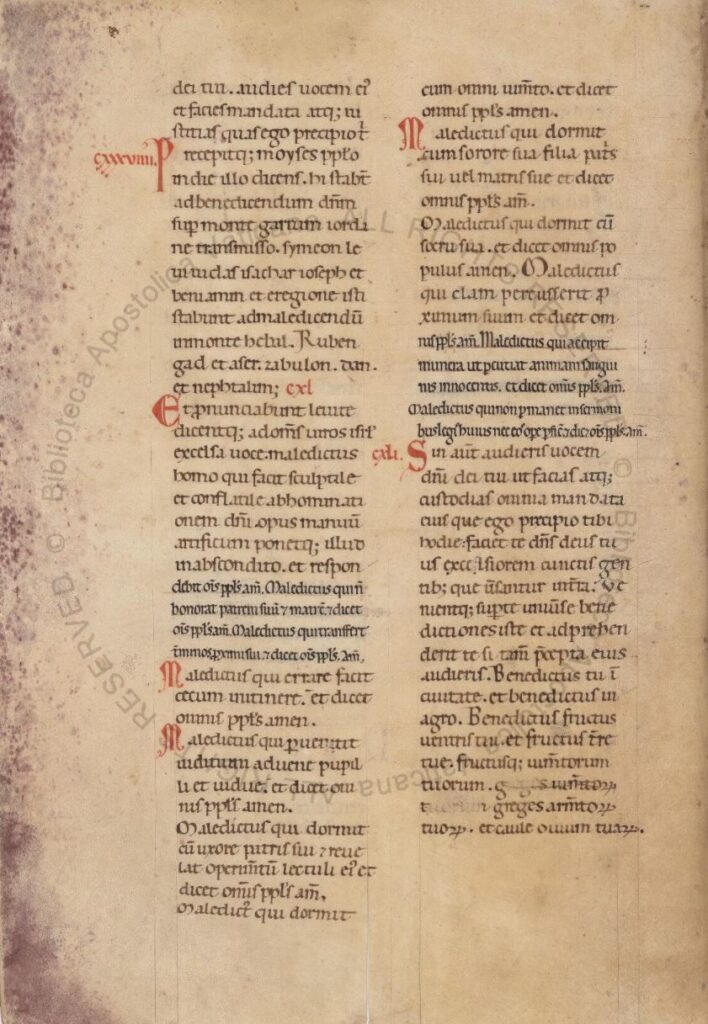 dei tui. audies uocem ei᾽
et facies mandata atq; iu
stitias quas ego precipio t̅
cxxxviiii. Precepitq; moyses pplo
in die illo dicens. hi stabt̅
ad benedicendum dn̅m
sup monte garizim iorda
ne transmisso. symeon le
ui iudas isachar ioseph et
beniamin et eregione isti
stabunt admaledicendu̅
inmonte hebal. Ruben
gad et aser. zabulon. dan.
et nephtalim; cxl
Et ꝓnunciabunt leuite
dicentq; ad om̅s uiros isrl̅
excelsa uoce. maledictus
homo qui facit sculptile
et conflatile abhominati
onem dn̅i. opus manuu̅
artificum ponetq; illud
inabscondito. et respon
debit om̅s ppl̅s am̅. Maledictus qui n̅
honorat patrem suu̅ ⁊ matre̅ ⁊ dicet
om̅s ppl̅s am̅. Maledictus qui transfert
t̅minos ꝓximi sui ⁊ dicet om̅s ppl̅s. Am̅.
Maledictus qui errare facit
cecum initinere. et dicet
omnis ppl̅s amen.
Maledictus qui ꝑuertit
iuditium aduene pupil
li et uidue. et dicet om
nis ppl̅s amen.
Maledictus qui dormit
cu̅ uxore patris sui ⁊ reue
lat operim̅tu̅ lectuli ei᾽ et
dicet om̅is ppl̅s am̅.
Maledict᾽ qui dormit
cum omni ium̅to. et dicet
omnis ppl̅s amen.
Maledictus qui dormit
cum sorore sua filia pat̅s
sui uel matris sue et dicet
omnis ppl̅s am̅.
Maledictus qui dormit cu̅
socru sua. et dicet omnis po
pulus amen. Maledictus
qui clam percusserit ꝓ
xumum suum et dicet om
nis ppl̅s am̅. Maledictus qui accipit
munera ut pcutiat animam sangui
nis innocentis. et dicet om̅is ppl̅s. am̅.
Maledictus qui non pmanet insermoni
bus legis huius nec eos ope ꝑficit ⁊ dic᾽ om̅s ppl̅s. am̅.
cxli. Sin aut̅ audieris uocem
dn̅i dei tui ut facias atq;
custodias omnia mandata
eius que ego precipio tibi
hodie. faciet te dn̅s deus tu
us excelsiorem cunctis gen
tib; que u̅santur in t̅ra. Ve
nientq; sup te uniu̅se bene
dictiones iste et adprehen
derit te si tam̅ p̅cepta eius
audieris. Benedictus tu i̅
ciuitate. et benedictus in
agro. Benedictus fructus
uentris tui. et fructus t̅re
tue. fructusq; ium̅torum
tuorum. ium̅toꝝ
greges arm̅toꝝ
tuoꝝ. et caule ouium tuaꝝ.